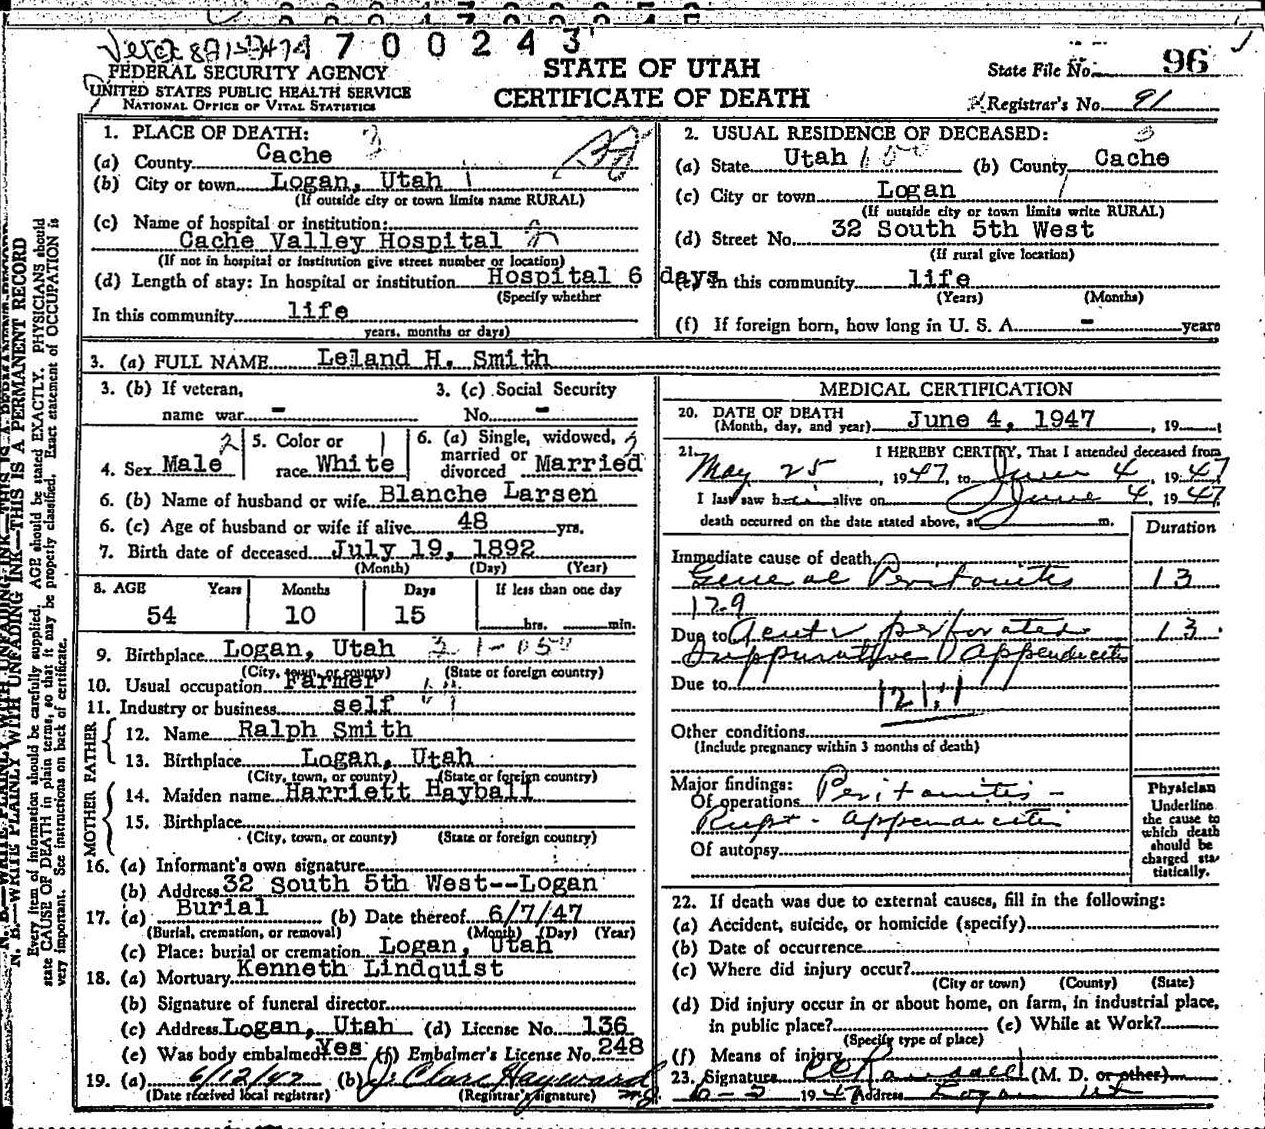 700243
FEDERAL SECURITY AGENCY
UNITED STATES PUBLIC HEALTH SERVICE
NATIONAL OFFICE OF VITAL STATISTICS
STATE OF UTAH
CERTIFICATE OF DEATH
State File No. 96
Registrar's No. 91
1. PLACE OF DEATH:
(a) County Cache
(b) City or town Logan, Utah
(If outside city or town limits name RURAL)
(c) Name of hospital or institution:
Cache Valley Hospital
(If not in hospital or institution give street number or location)
(d) Length of stay: In hospital or institution Hospital 6 days
(Specify whether
In this community life
years, months or days)
2. USUAL RESIDENCE OF DECEASED:
(a) State Utah (b) County Cache
(c) City or town Logan
(If outside city or town limits write RURAL)
(d) Street No. 32 South 5th West
(If rural give location)
In this community life
(Years) (Months)
(f) If foreign born, how long in U. S. A. - years
3. (a) FULL NAME Leland H. Smith
3. (b) If veteran, 3. (c) Social Security
name war - No. -
4. Sex Male 5. Color or race White 6. (a) Single, widowed, married or divorced Married
6. (b) Name of husband or wife Blanche Larsen
6. (c) Age of husband or wife if alive 48 yrs.
7. Birth date of deceased July 19, 1892
(Month) (Day) (Year)
8. AGE Years Months Days If less than one day
54 10 15 hrs. min.
9. Birthplace Logan, Utah
(City, town, or county) (State or foreign country)
10. Usual occupation Farmer
11. Industry or business self
FATHER
12. Name Ralph Smith
13. Birthplace Logan, Utah
(City, town, or county) (State or foreign country)
MOTHER
14. Maiden name Harriett Hayball
15. Birthplace
(City, town, or county) (State or foreign country)
16. (a) Informant's own signature
(b) Address 32 South 5th West--Logan
17. (a) Burial (b) Date thereof 6/7/47
(Burial, cremation, or removal) (Month) (Day) (Year)
(c) Place: burial or cremation Logan, Utah
18. (a) Mortuary Kenneth Lindquist
(b) Signature of funeral director
(c) Address Logan, Utah (d) License No. 136
(e) Was body embalmed? Yes (f) Embalmer's License No. 248
19. (a) 6/12/47 (b) J. Clare Hayward
(Date received local registrar) (Registrar's signature)
MEDICAL CERTIFICATION
20. DATE OF DEATH
(Month, day, and year) June 4, 1947, 19
21. I HEREBY CERTIFY, That I attended deceased from
May 25, 1947, to June 4, 1947
I last saw him alive on June 4, 1947
death occurred on the date stated above, at m.
Duration
Immediate cause of death
General Peritonitis 13
129
Due to acute perforated 13
Suppurative Appendicitis
Due to
121.1
Other conditions
(Include pregnancy within 3 months of death)
Major findings:
Of operations Peritonitis -
Rupt - appendicitis
Of autopsy
Physician
Underline
the cause to
which death
should be
charged sta-
tistically.
22. If death was due to external causes, fill in the following:
(a) Accident, suicide, or homicide (specify)
(b) Date of occurrence
(c) Where did injury occur?
(City or town) (County) (State)
(d) Did injury occur in or about home, on farm, in industrial place,
in public place? (e) While at Work?
(Specify type of place)
(f) Means of injury
23. Signature (M. D. or other)
1947 Address Logan Ut
N. B.—WRITE PLAINLY WITH UNFADING INK—THIS IS A PERMANENT RECORD
Every item of information should be carefully supplied. AGE should be stated EXACTLY. PHYSICIANS should
state CAUSE OF DEATH in plain terms, so that it may be properly classified. Exact statement of OCCUPATION is
very important. See instructions on back of certificate.